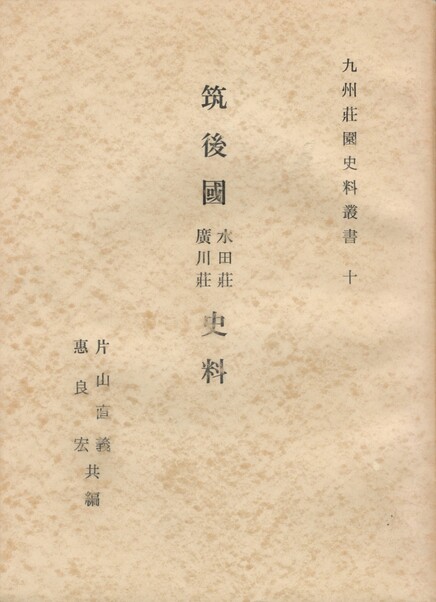 九州莊園史料叢書 十
筑後國
水田莊
廣川莊
史料
片山直義
惠良 宏
共編